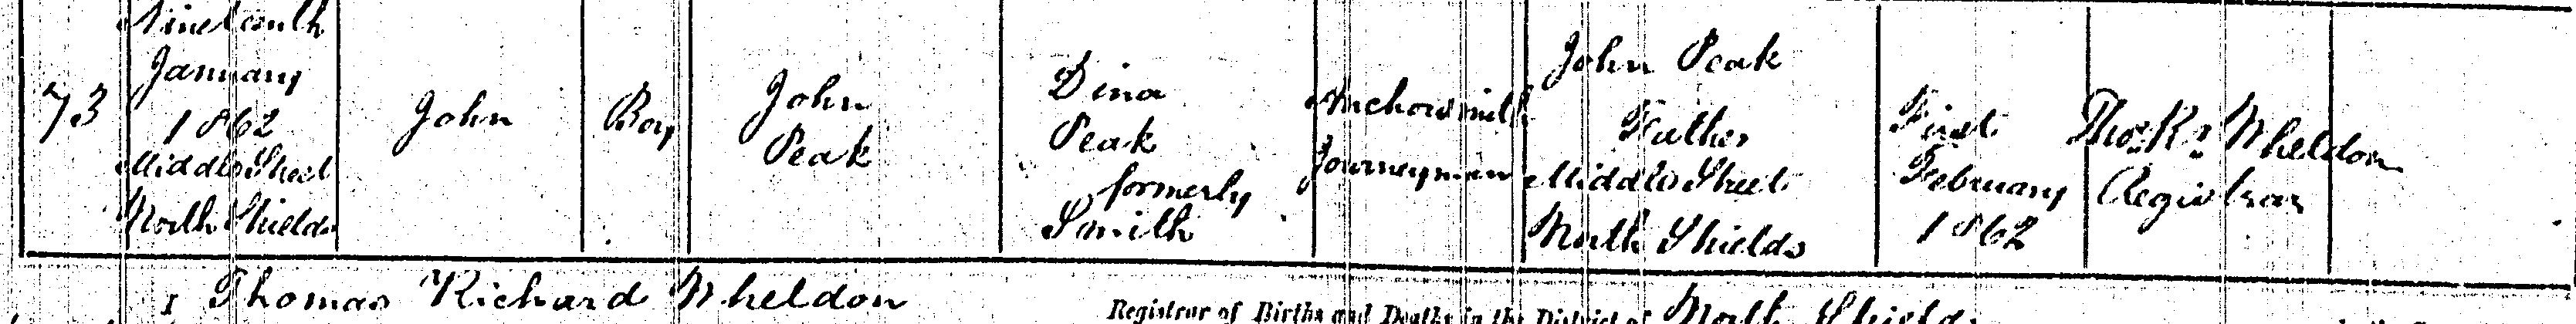 73
Nineteenth
January
1862
Middle Street
North Shields
John
Boy
John
Peak
Dina
Peak
formerly
Smith
Anchorsmith
Journeyman
John Peak
Father
Middle Street
North Shields
First
February
1862
Thos. Rd. Wheldon
Registrar
I Thomas Richard Wheldon
Registrar of Births and Deaths in the District of North Shields